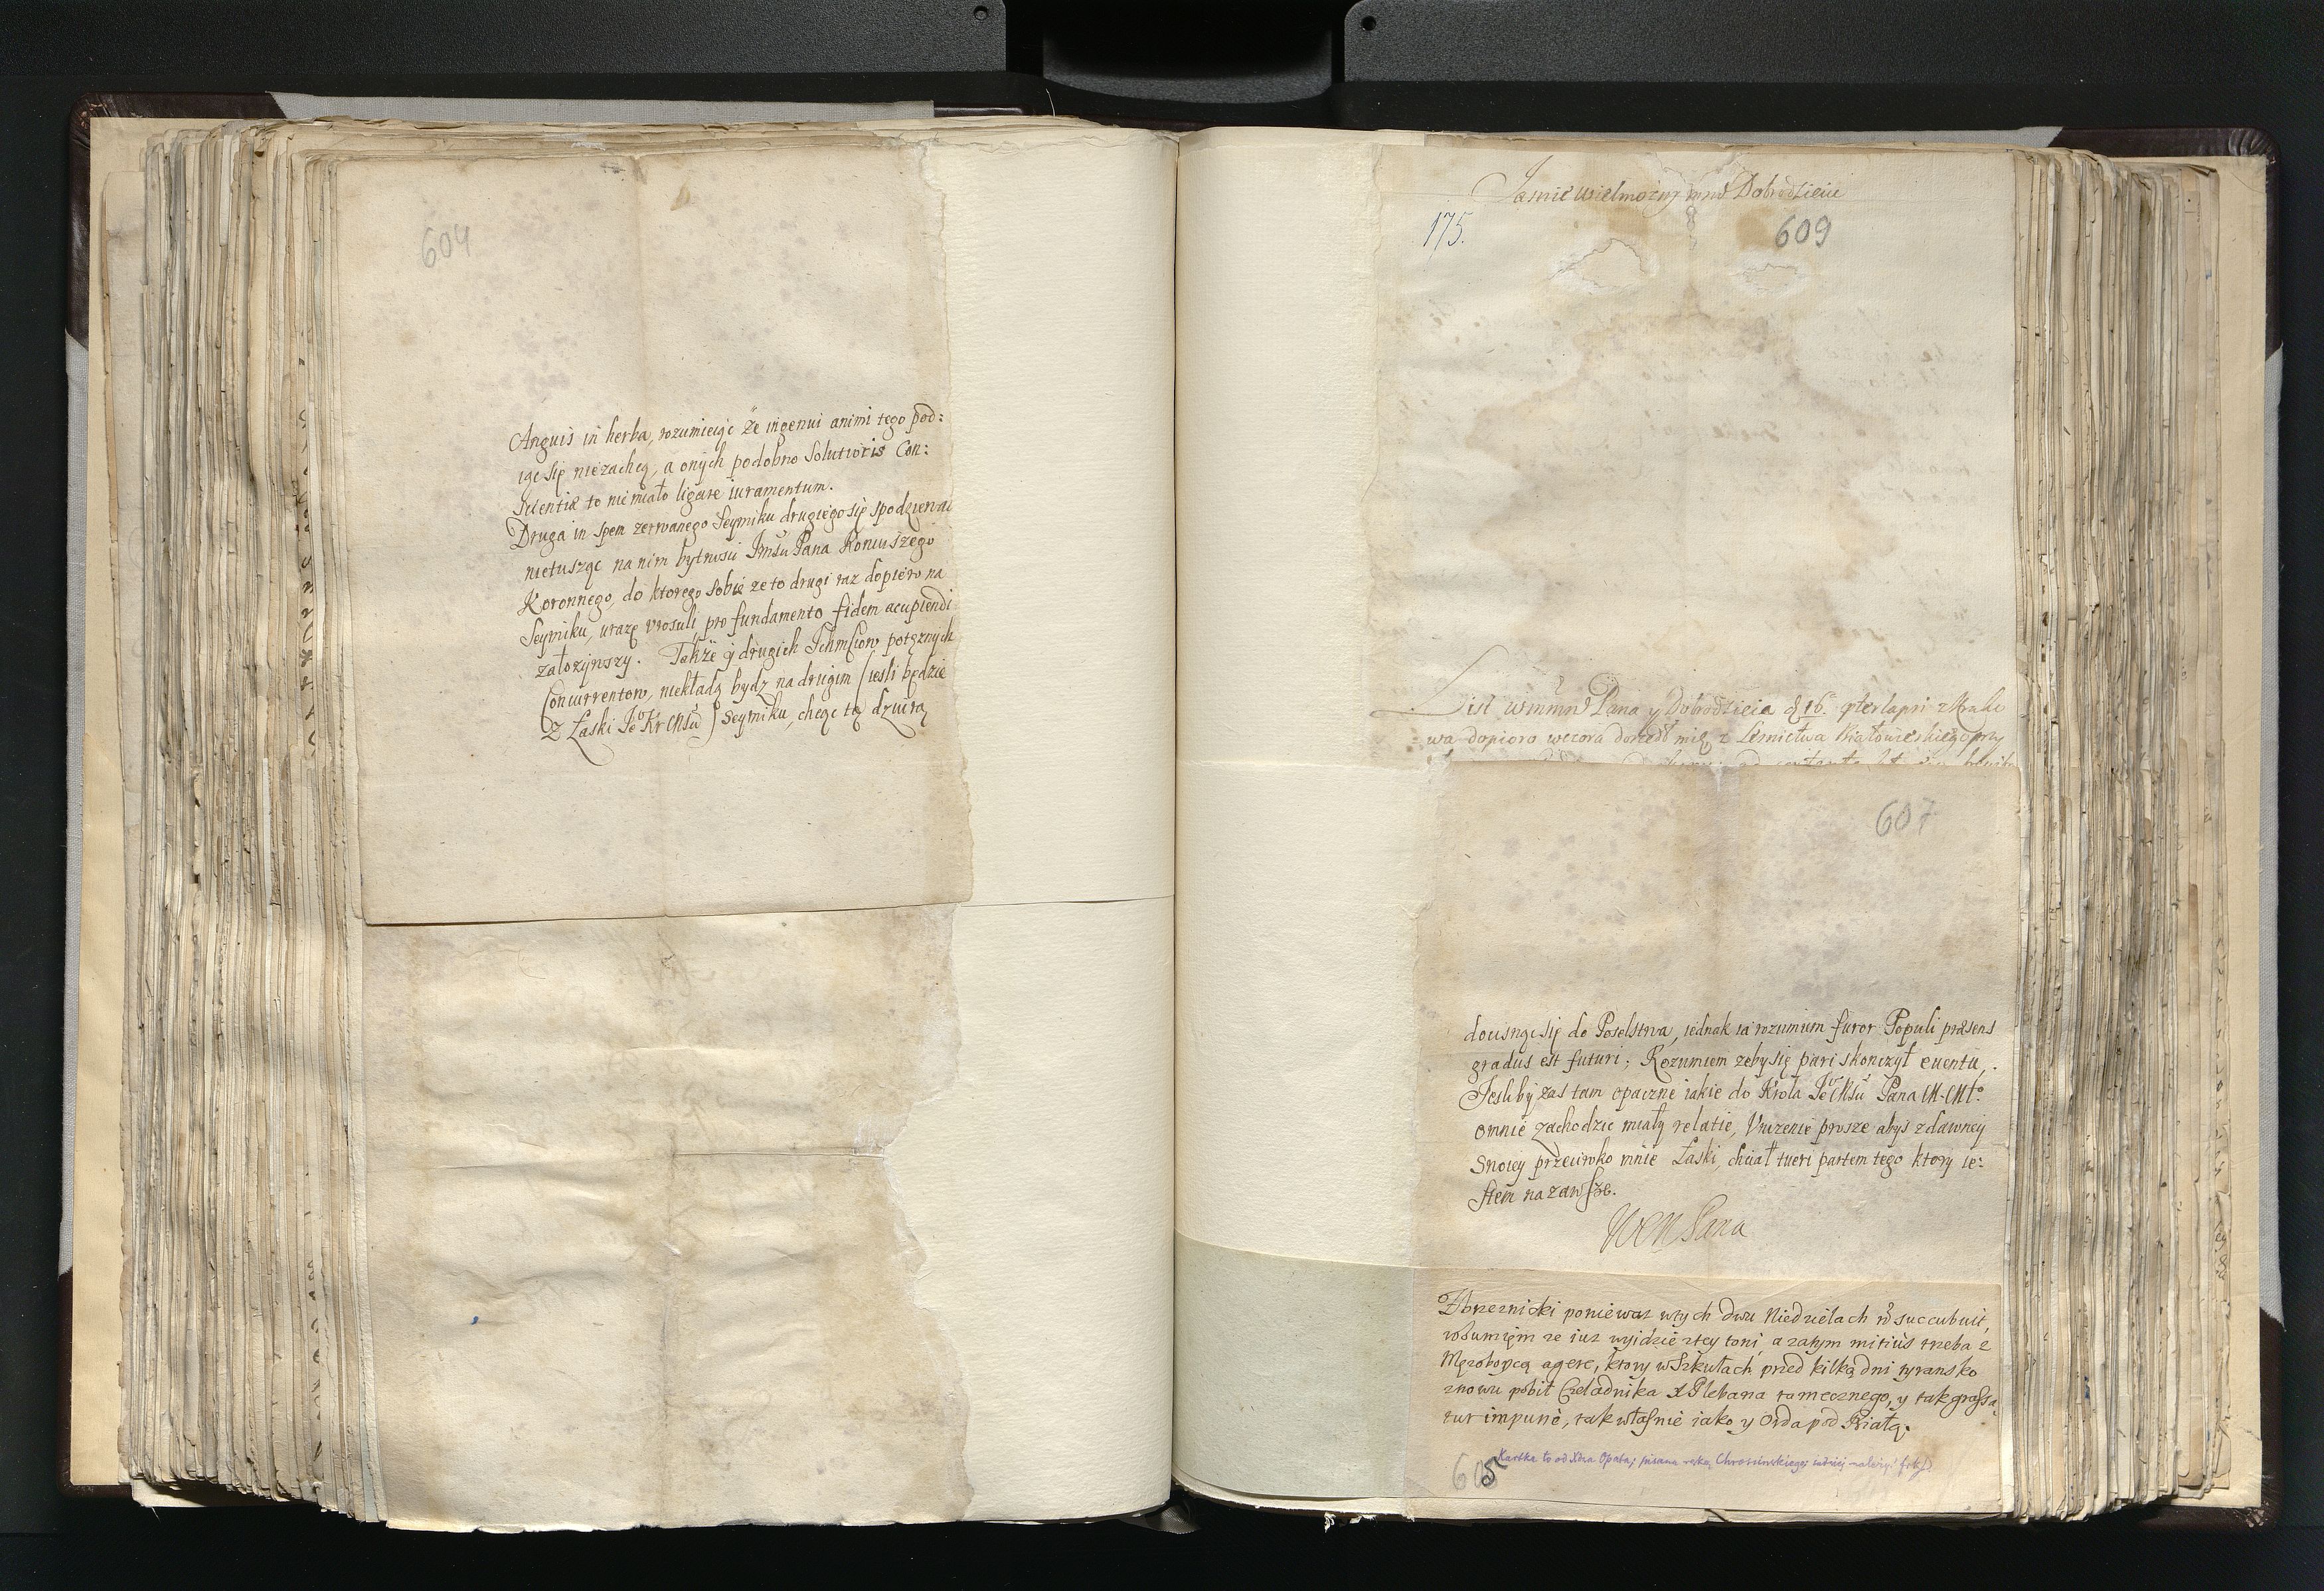 604
Anguis in herba, rozumieiąc że ingenui animi tego pod:
iąc się niezachcą, a onych podobno Solutioris Con:
scientiæ to niemiało ligare iuramentum.
Druga in spem zerwanego Seymiku drugiego się spodziewai
nietusząc na nim bytnosci Jmści Pana Koniuszego
Koronnego, do ktorego sobie ze to drugi raz dopiero na
Seymiku, urazę urosuli pro fundamento fidem acupiendi
założywszy. Także y drugich Ichmściow potężnych
Concurrentow, niekładą bydz na drugim (iesli będzie
Z Łaski Jo Kr Mści) Seymiku, chcąc tą dzwirą
Jasnie Wielmozny mnd Dobrodzieiu
175.
609
List wmmd Pana y Dobrodzieia d 16
wa dopioro wczora doszedł mię z Lesnictwa Białowieskiego przy
607
docisnąc się do Poselstwa, iednak ia rozumiem furor Populi præsens
gradus est futuri; Rozumiem zeby się pari skonczył euentu,.
Jesliby zas tam opaczne iakie do Krola Jo Mści Pana M. Mło
omnie zachodzic miały relatie, Unizenie prosze abys zdawney
Swoiey przeciwko mnie Łaski, chciał tueri partem tego ktory ie:
stem na zawsze.
WM Pana
Zbrzeznicki poniewaz wtych dwu Niedzielach nō succubuit,
rozumięm ze iuz wyidzie ztey toni, a zatym mitius trzeba z
Męzoboycą agere, ktory w Szkułach przed kilką dni tyransko
znowu pobił Czeladnika X Plebana tamecznego, y tak grassa
tur impune, tak własnie iako y Orda pod Białą.
605
Kartka to od Xdza Opata; pisana ręką Chrościńskiego;